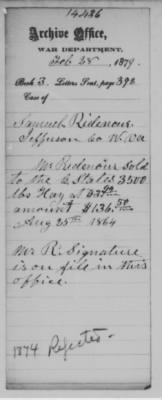 14426
Archive Office,
WAR DEPARTMENT,
Feb 28, 1879.
Book 3. Letters Sent, page 392
Case of
Samuel Ridenour
Jefferson Co W. Va
Mr Ridenour sold
to the C. States 3500
lbs Hay at
amount $136.50
Aug 25th 1864
Mr R. Signature
is on file in this
office.
1874 Rejected